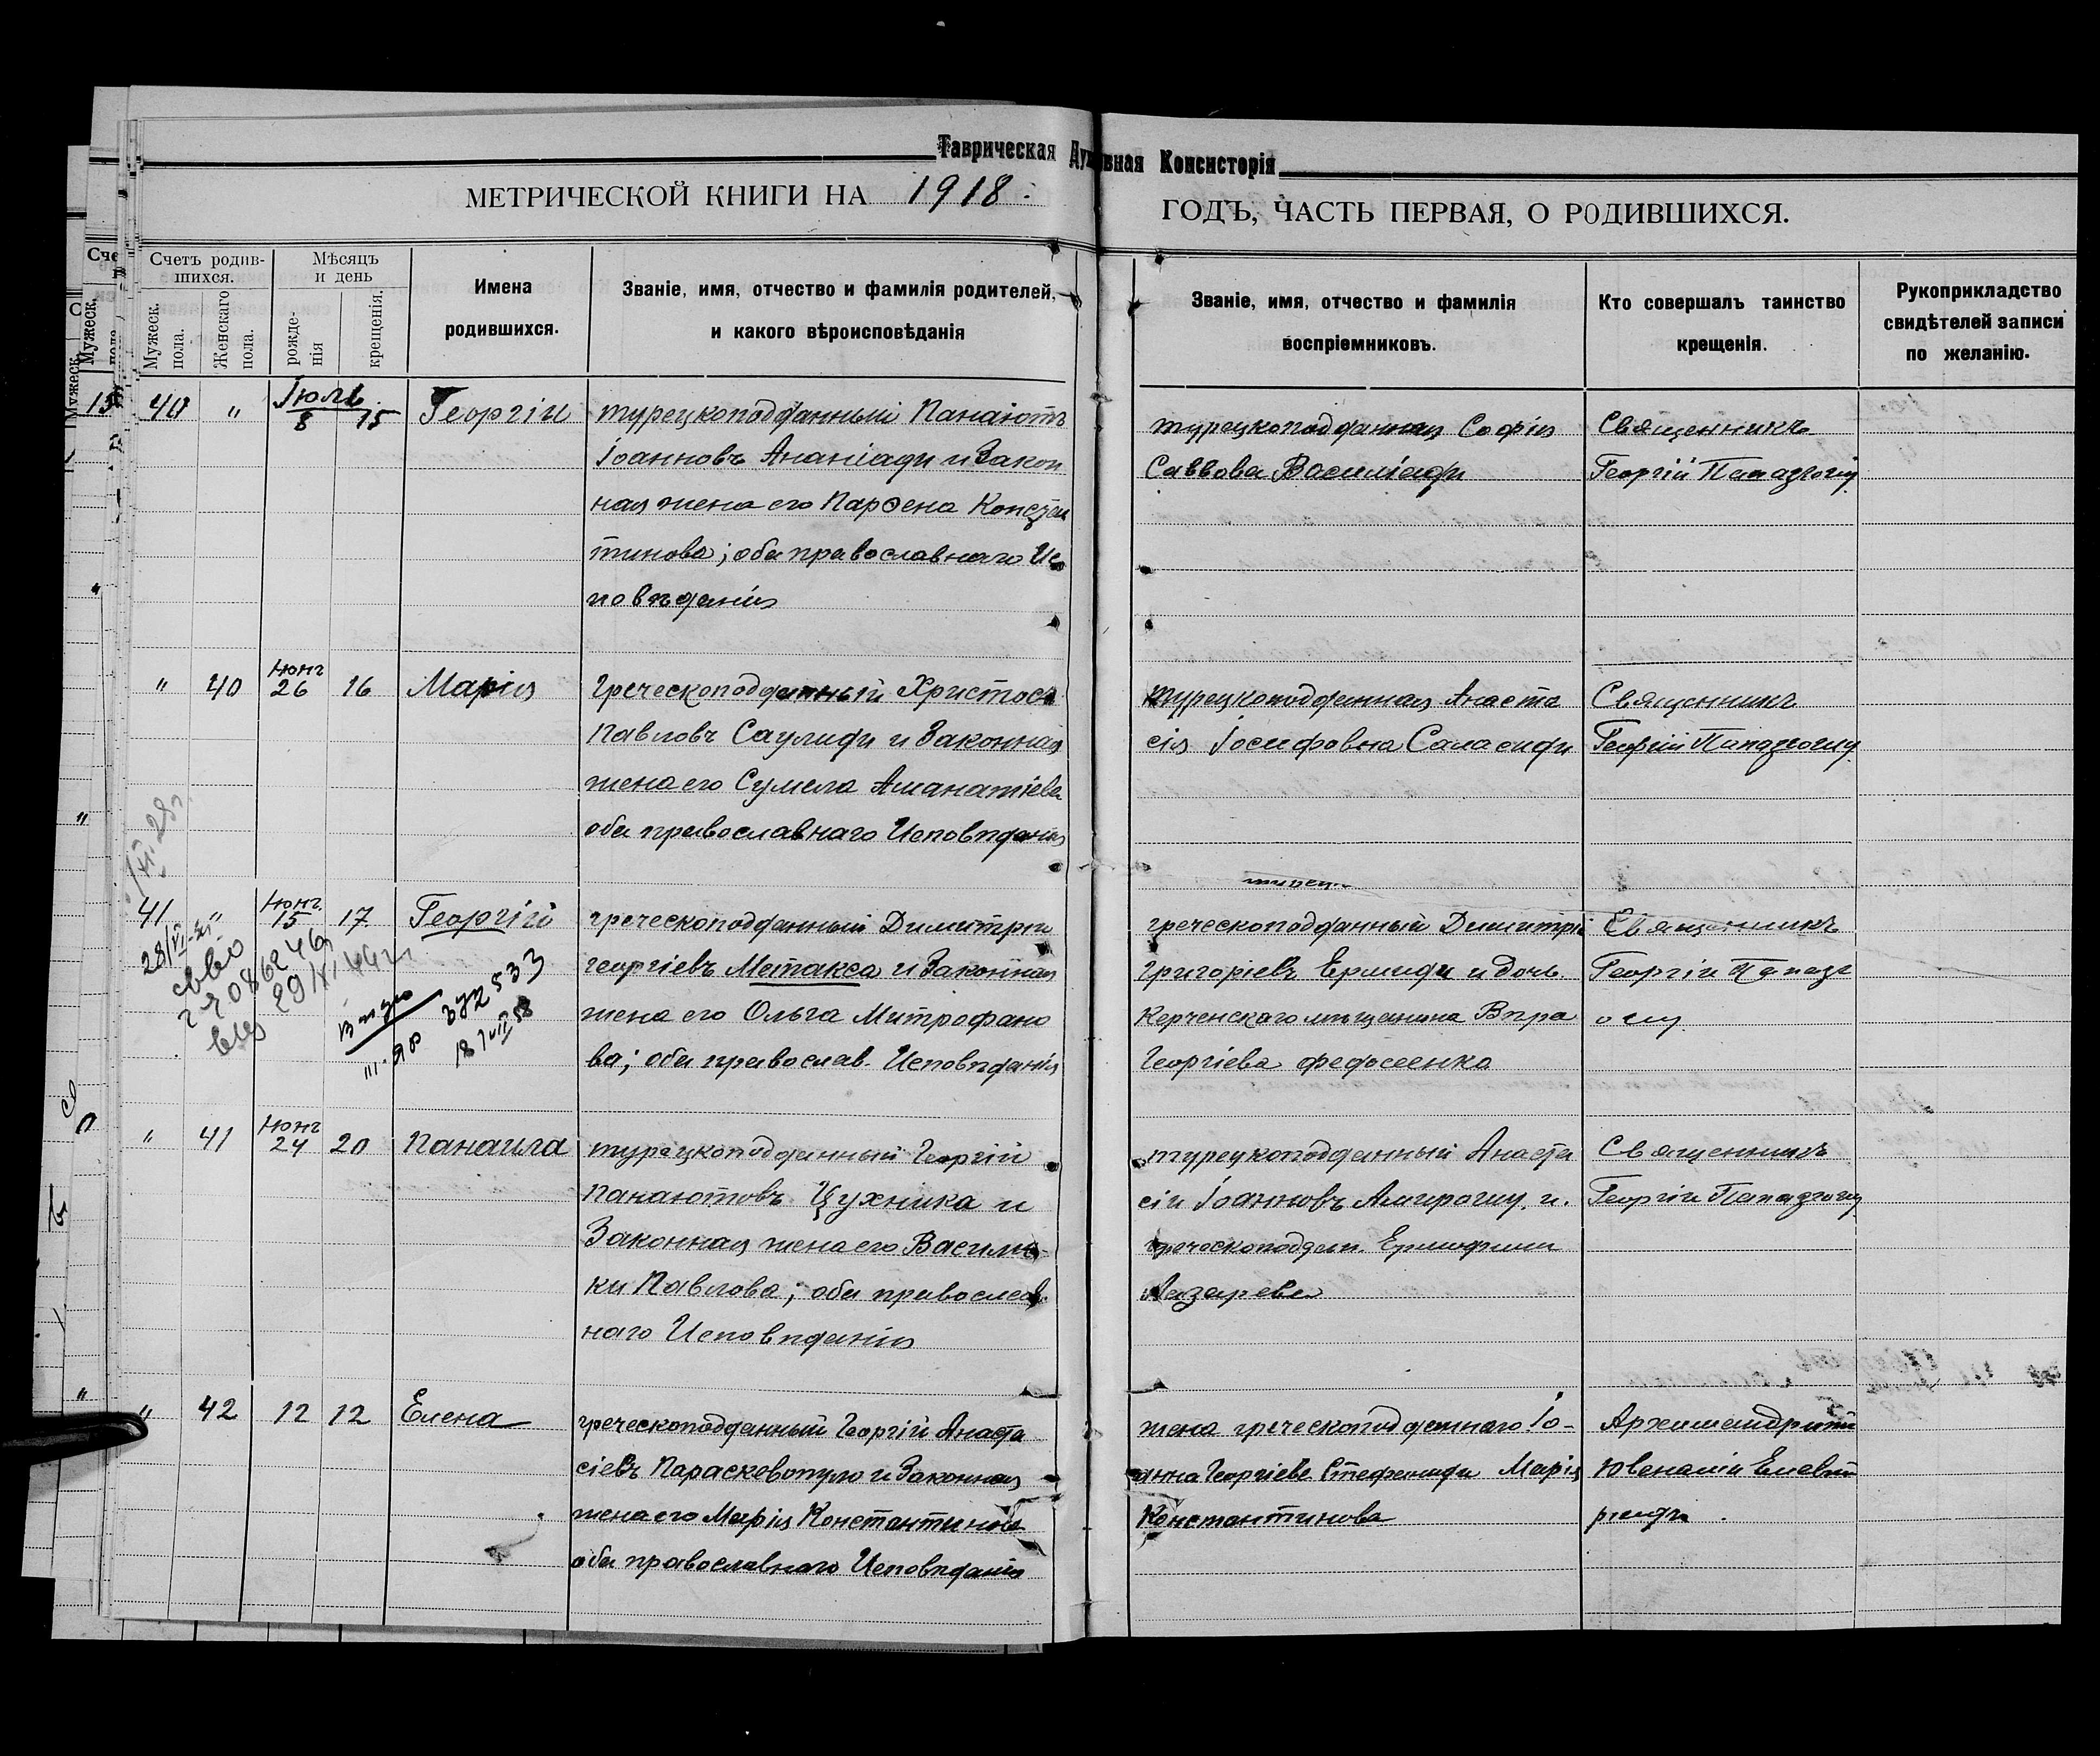 Таврическая Духовная Консисторія
МЕТРИЧЕСКОЙ КНИГИ НА 1918.
ГОДЪ, ЧАСТЬ ПЕРВАЯ, О РОДИВШИХСЯ.
Счетъ родив-
шихся.
Мужеск.
пола.
Женскаго
пола.
Мѣсяцъ
и день
рожде-
нія
крещенія.
Имена
родившихся.
Званіе, имя, отчество и фамилія родителей,
и какого вѣроисповѣданія
Званіе, имя, отчество и фамилія
воспріемниковъ.
Кто совершалъ таинство
крещенія.
Рукоприкладство
свидѣтелей записи
по желанію.
40 " Іюль 8 15 Георгій
турецкоподданный Панаіотъ
Іоанновъ Ананіади и Закон
ная жена его Парѳена Констан
тинова; оба православнаго Ис
повѣданія
турецкоподданная Софія
Саввова Василіади
Священникъ
Георгій Папазоглу
" 40 Іюнь 26 16 Марія
Греческоподданный Христосъ
Павловъ Саулиди и Законная
жена его Сумела Аманатіева
оба православнаго Исповѣданія
турецкоподданная Анаста
сія Іосифовна Саласиди
Священникъ
Георгій Папазоглу
41 " Іюнь 15 17 Георгій
греческоподданный Димитрій
Георгіевъ Метакса и Законная
жена его Ольга Митрофано
ва; оба православ. Исповѣданія
греческоподданный Димитрій
Григоріевъ Ермиди и дочь
Керченскаго мѣщанина Вѣра
Георгіева Федосеенко
Священникъ
Георгій Папаз
оглу
" 41 Іюнь 24 20 Панаила
турецкоподданный Георгій
Панаіотовъ Цухника и
Законная жена его Васили-
ки Павлова; оба православ
наго Исповѣданія
турецкоподданный Анаста
сій Іоанновъ Амироглу и
греческоподдан.
Лазарева
Священникъ
Георгій Папазоглу
" 42 12 12 Елена
греческоподданный Георгій Анаста
сіевъ Параскевопуло и Законная
жена его Марія Константинова
оба православнаго Исповѣданія
жена греческоподданнаго Іо-
анна Георгіева Стефаниди Марія
Константинова
Архимандритъ
Ювеналій Елевѳ
ріади